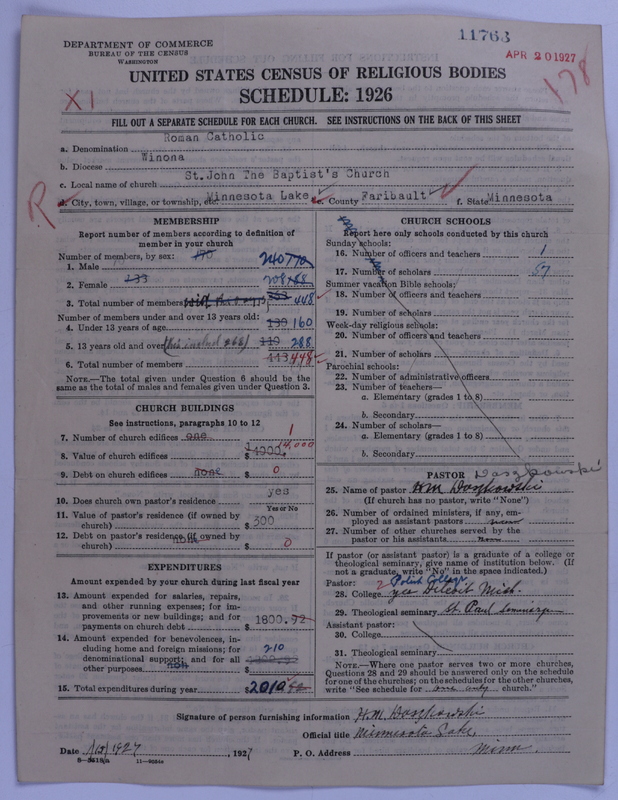 11763
APR 20 1927
178
DEPARTMENT OF COMMERCE
BUREAU OF THE CENSUS
WASHINGTON
X1
UNITED STATES CENSUS OF RELIGIOUS BODIES
SCHEDULE: 1926
FILL OUT A SEPARATE SCHEDULE FOR EACH CHURCH. SEE INSTRUCTIONS ON THE BACK OF THIS SHEET
a. Denomination Roman Catholic
b. Diocese Winona
c. Local name of church St.John The Baptist's Church
R
d. City, town, village, or township, etc. Minnesota Lake e. County Faribault f. State Minnesota
MEMBERSHIP
Report number of members according to definition of
member in your church
Number of members, by sex:
1. Male 240
2. Female 208
133
3. Total number of members 448
Number of members under and over 13 years old:
4. Under 13 years of age 160
5. 13 years and over 288
6. Total number of members 443 448
NOTE.—The total given under Question 6 should be the
same as the total of males and females given under Question 3.
CHURCH BUILDINGS
See instructions, paragraphs 10 to 12
7. Number of church edifices one 1
8. Value of church edifices $ 14,000
9. Debt on church edifices none $ 0
10. Does church own pastor's residence yes
Yes or No
11. Value of pastor's residence (if owned by
church) $ 300
12. Debt on pastor's residence (if owned by
church) $ 0
EXPENDITURES
Amount expended by your church during last fiscal year
13. Amount expended for salaries, repairs,
and other running expenses; for im-
provements or new buildings; and for
payments on church debt $ 1800.92
14. Amount expended for benevolences, in-
cluding home and foreign missions; for
denominational support; and for all
other purposes $ 210
15. Total expenditures during year $ 2010
CHURCH SCHOOLS
Report here only schools conducted by this church
Sunday schools:
16. Number of officers and teachers 1
17. Number of scholars 57
Summer vacation Bible schools:
18. Number of officers and teachers
19. Number of scholars
Week-day religious schools:
20. Number of officers and teachers
21. Number of scholars
Parochial schools:
22. Number of administrative officers
23. Number of teachers—
a. Elementary (grades 1 to 8)
b. Secondary
24. Number of scholars—
a. Elementary (grades 1 to 8)
b. Secondary
PASTOR
25. Name of pastor
(If church has no pastor, write "None")
26. Number of ordained ministers, if any, em-
ployed as assistant pastors none
27. Number of other churches served by the
pastor or his assistants none
If pastor (or assistant pastor) is a graduate of a college or
theological seminary, give name of institution below. (If
not a graduate, write "No" in the space indicated.)
Pastor: 2 Polish College
28. College yes Detroit Mich.
29. Theological seminary St. Paul Seminary
Assistant pastor:
30. College
31. Theological seminary
NOTE.—Where one pastor serves two or more churches,
Questions 28 and 29 should be answered only on the schedule
for one of the churches; on the schedules for the other churches,
write "See schedule for one only church."
Signature of person furnishing information
Official title Minnesota Lake,
Date 1927, 1927 P. O. Address Minn.
11—9054a